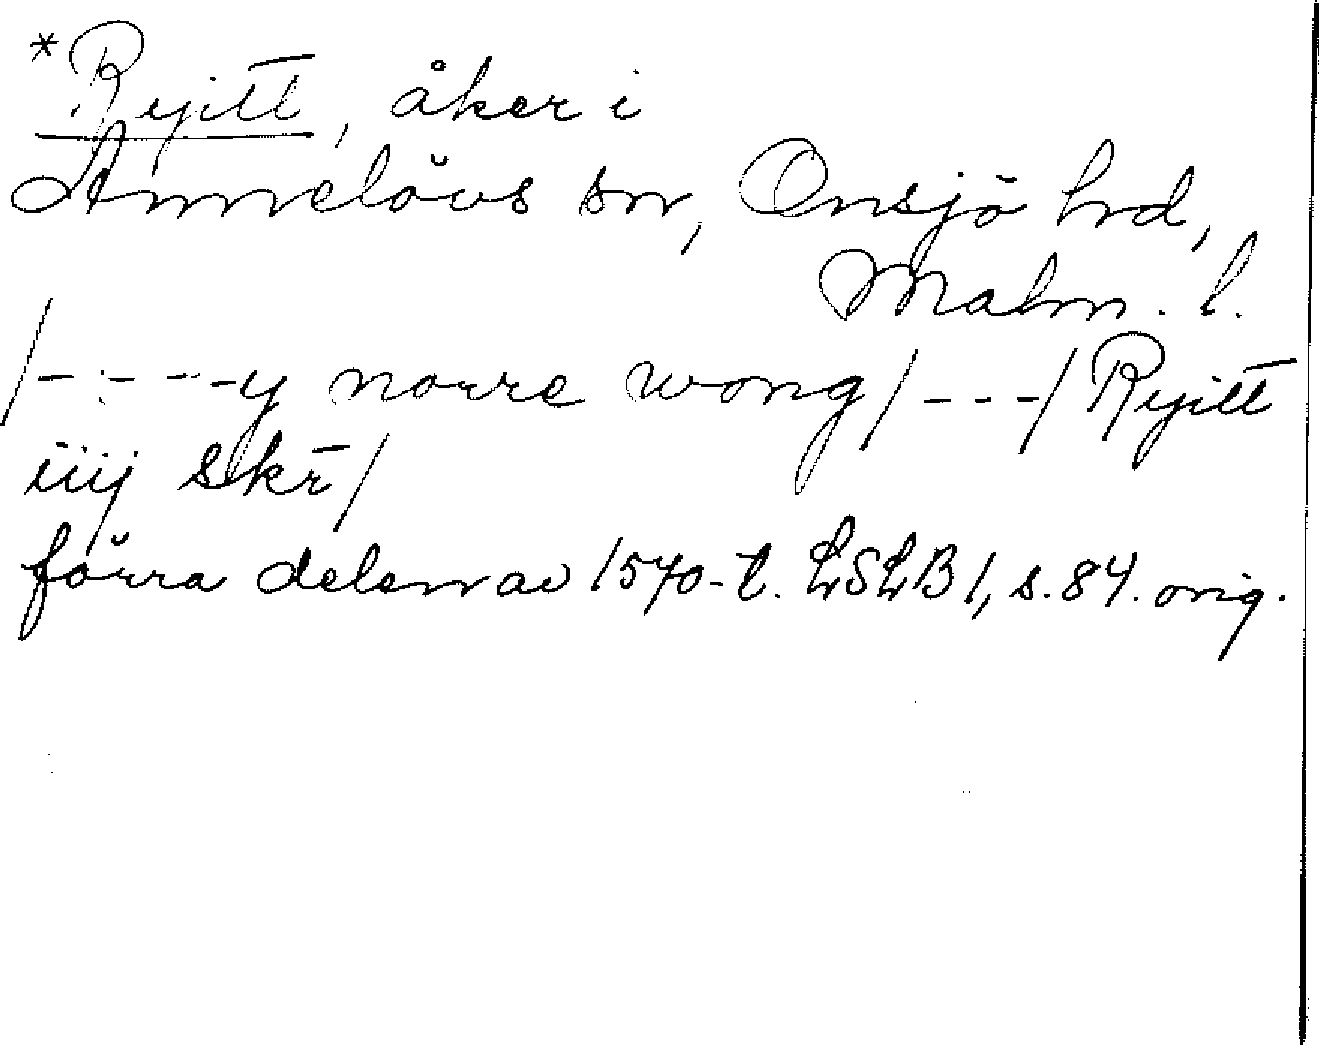 *Ryitt, åker i
Annelövs sn, Onsjö hd,
Malm. l.
/----y norre wong/---/Ryitt
iiij skr̄/
förra delen av 1570-t. LSLB 1, s. 84. orig.